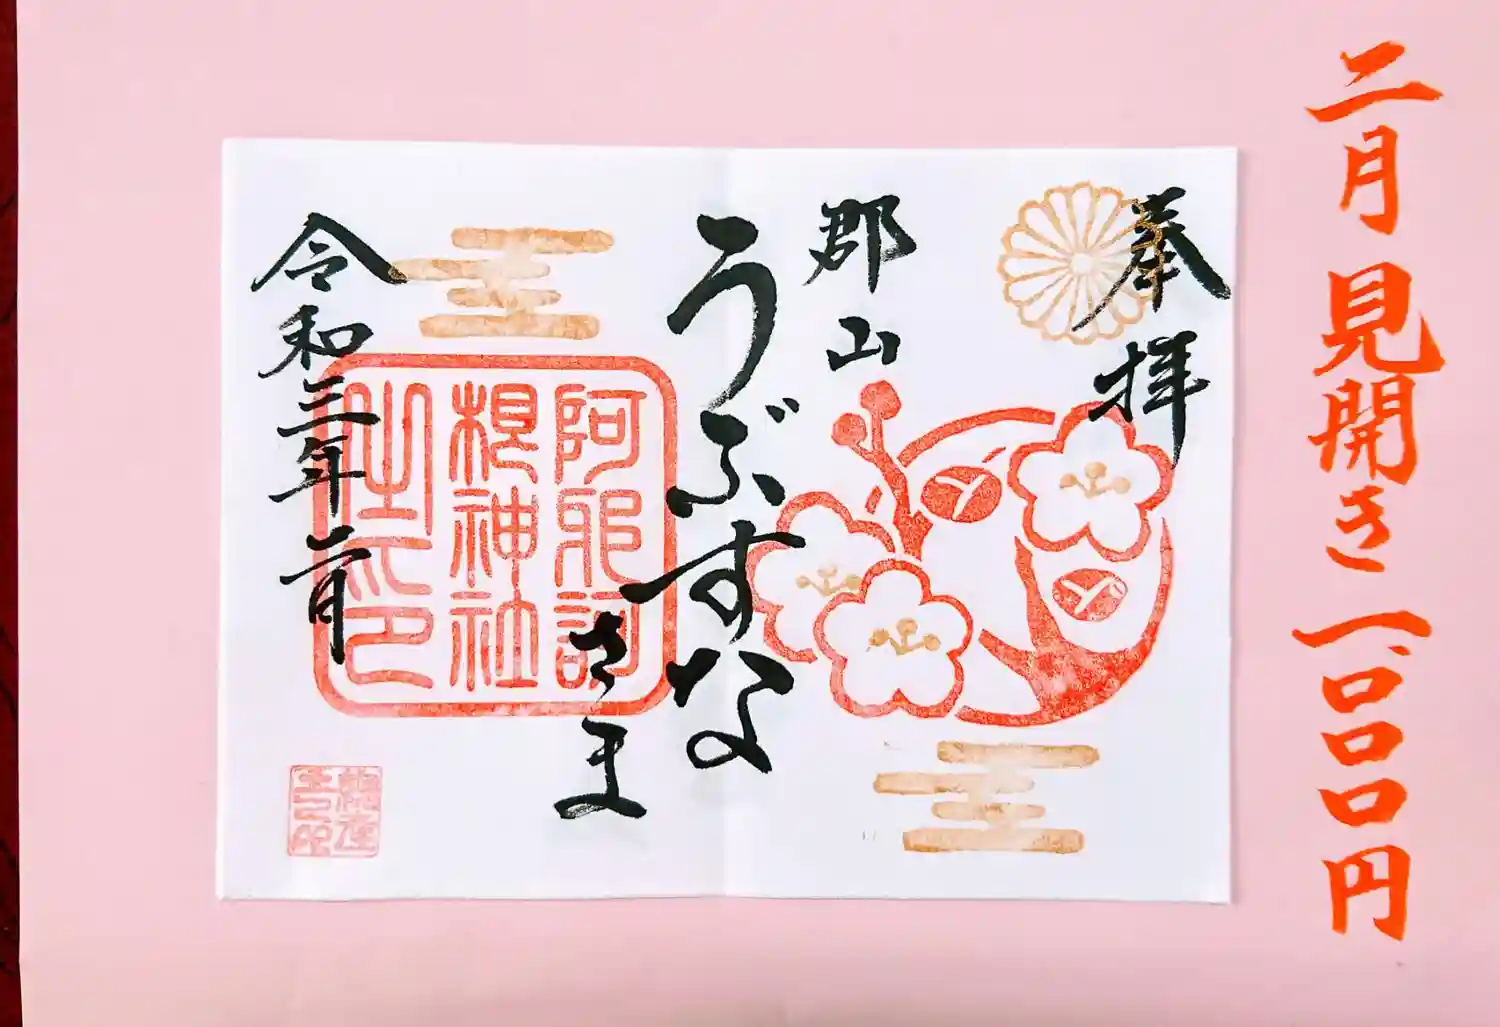 二月 見開き 一、〇〇〇円
奉拝
郡山
うぶすな
さま
阿邪訶
根神社
令和三年二月